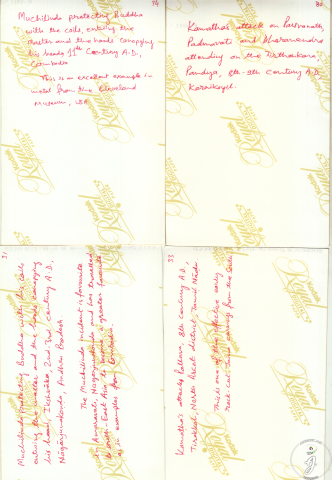 34
Muchilinda protecting Buddha
with the coils, entwing the
master and the hoods canopying
his head, 11th Century A.D.,
Cambodia
This is an excellent example in
metal from the Cleveland
museum, USA
Kamatha's attack on Parsvanath,
Padmavati and Dharanendra
attending on the Tirthankara,
Pandya, 8th-9th century A.D.
31
Muchilinda protecting Buddha with his coils
entwing the master and the hoods canopying
his head, Ikshvaku, 2nd-3rd Century A.D.
Nagarjunakonda, Andhra Pradesh
The Muchilinda incident is favourite
in Amaravati, Nagarjunakonda and has travelled
to south-East Asia to become a greater favourite
as in examples from Cambodia.
33
Kamatha's attack, Pallava, 8th Century A.D.,
North Arcot District, Tamil Nadu
This is one of the effective early
rock-cut Jaina carvings from the